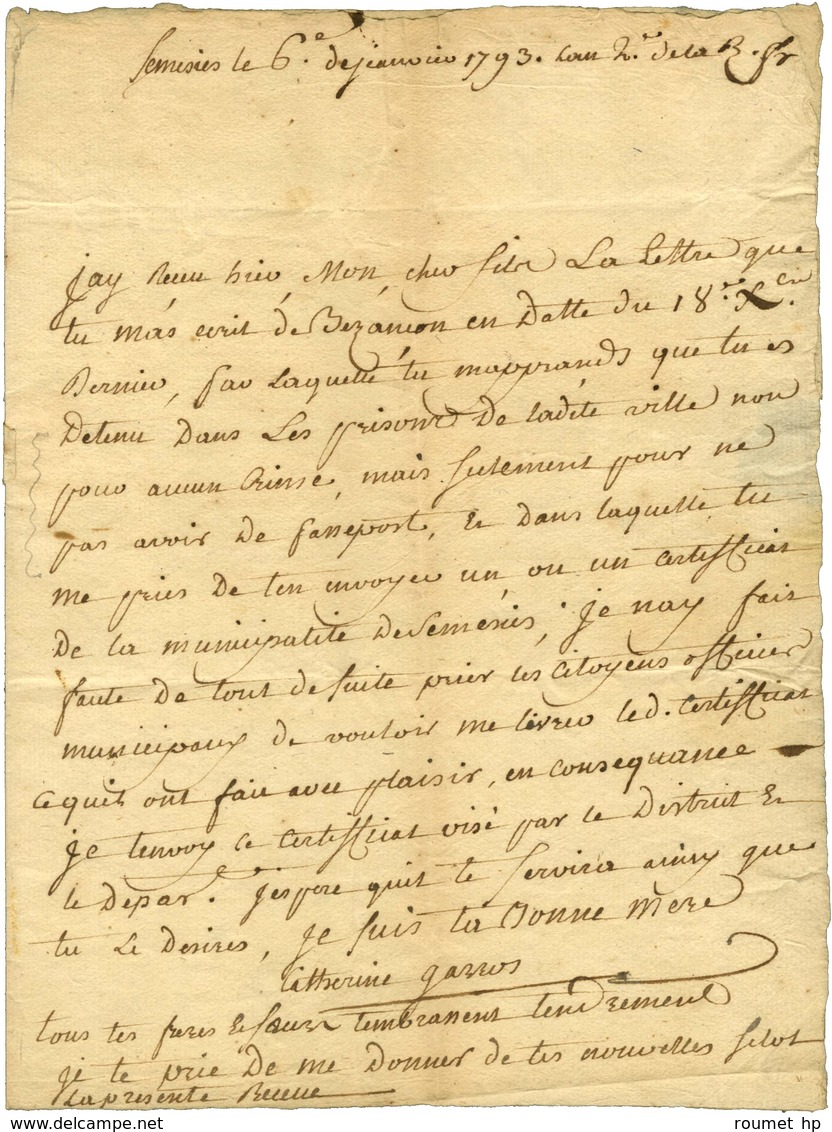 Semesies le 6.e de jeanvier 1793. Lan 2.e de la R. fr
jay Receu hier, Mon, cher fils La Lettre que
tu m'as ecrit de Bezancon en Datte du 18.me Xbre
Dernier, par Laquelle tu mapprands que tu es
Detenu Dans Les prisons De ladite ville non
pour aucun Crime, mais seulement pour ne
pas avoir De passeport, Et Dans laquelle tu
me pries De ten envoyer un, ou un certifficat
De la municipalité De Semésiés; je nay fait
faute De tout de suite prier les Citoyens officier
municipaux de vouloir me livrer led. Certifficat
ce quils ont fait avec plaisir, en consequance
je tenvoy ce Certifficat visé par le District Et
le Depar. jespere quil te servira ainsy que
tu Le Desires, je suis ta Bonne mere
Catherine garros
tous tes freres Et sœurs tembrassent tendrement
je te prie De me Donner de tes nouvelles sitot
La presente Receue
roumet hp